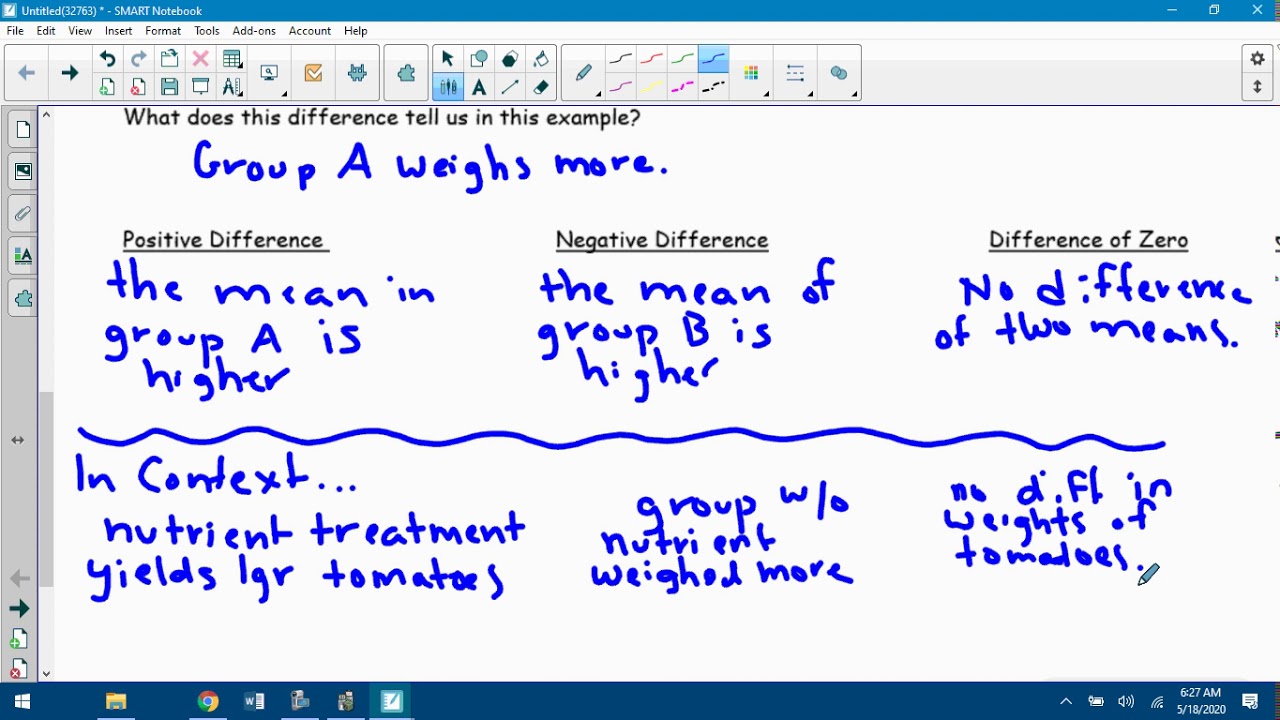 Untitled(32763) * - SMART Notebook
File Edit View Insert Format Tools Add-ons Account Help
What does this difference tell us in this example?
Group A weighs more.
Positive Difference
the mean in
group A is
higher
Negative Difference
the mean of
group B is
higher
Difference of Zero
No difference
of two means.
In Context...
nutrient treatment
yields lgr tomatoes
group w/o
nutrient
weighed more
no diff. in
weights of
tomatoes.
6:27 AM
5/18/2020